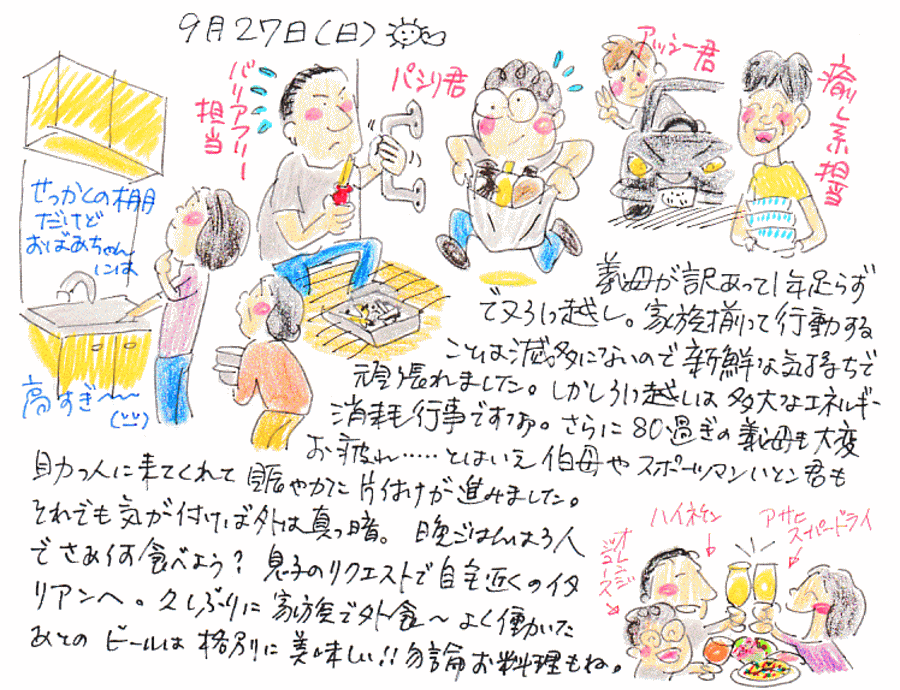 9月27日(日)
バリアフリー
担当
パシリ君
アッシー君
癒し系担当
せっかくの棚
だけど
おばあちゃん
には
高すぎ〜〜〜
義母が訳あって1年足らず
で又引っ越し。家族揃って行動する
ことは滅多にないので新鮮な気持ちで
頑張れました。しかし引っ越しは多大なエネルギー
消耗行事ですなあ。さらに80過ぎの義母も大変
お疲れ……とはいえ伯母やスポーツマンいとこ君も
助っ人に来てくれて賑やかに片付けが進みました。
それでも気が付けば外は真っ暗。晩ごはんは3人
でさあ何食べよう?息子のリクエストで自宅近くのイタ
リアンへ。久しぶりに家族で外食〜よく働いた
あとのビールは格別に美味しい!!勿論お料理もね。
ハイネケン
アサヒ
スーパードライ
オレンジ
ジュース